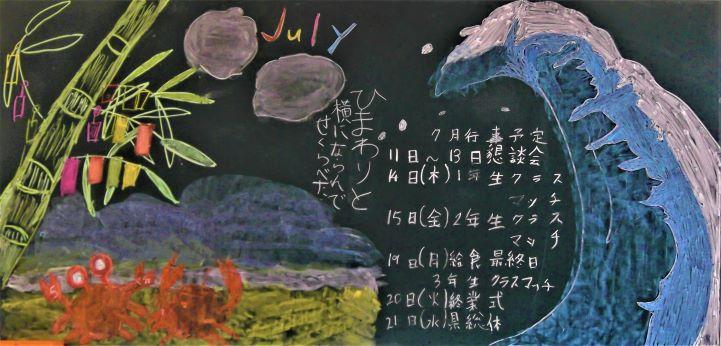 July
ひまわりと
横にならんで
せくらべだ
7月行事予定
11日～13日懇談会
14日(木)1年生クラス
マッチ
15日(金)2年生クラス
マッチ
19日(月)給食最終日
3年生クラスマッチ
20日(火)終業式
21日(水)県総体